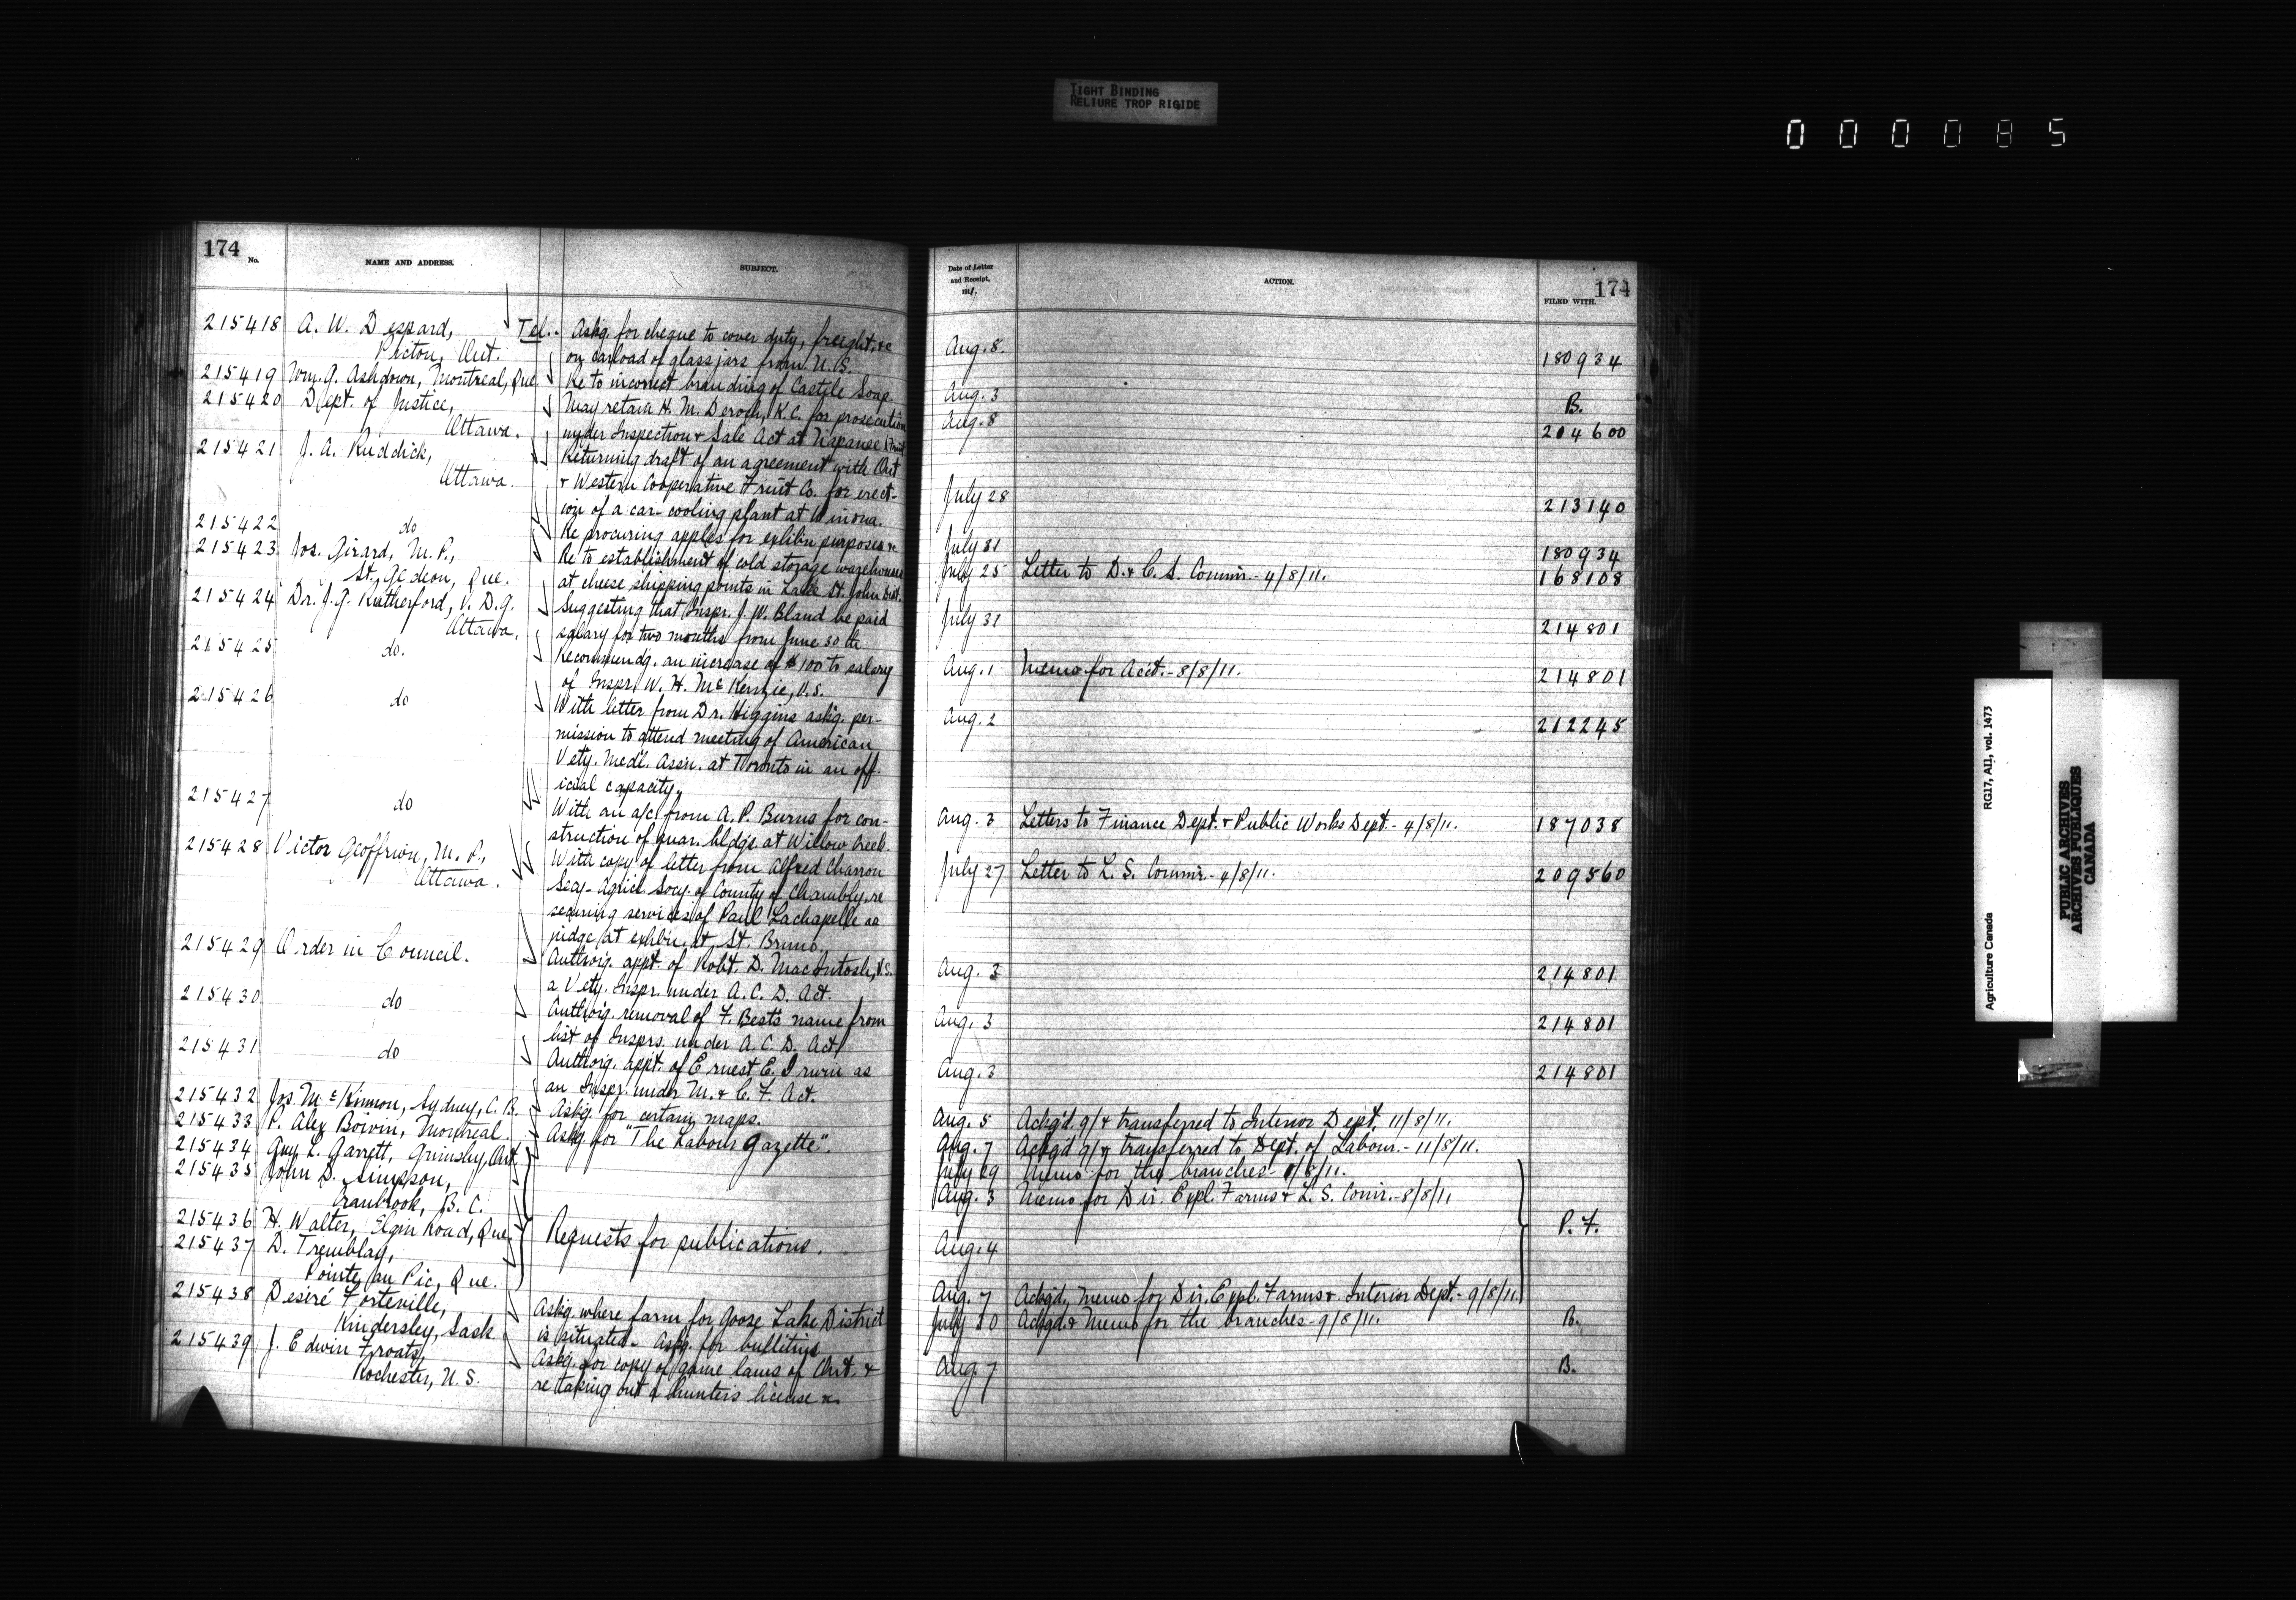 TIGHT BINDING
RELIURE TROP RIGIDE
000085
174 No. NAME AND ADDRESS. SUBJECT.
215418 A. W. Despard, Tel. - Askg. for cheque to cover duty, freight, &c
Picton, Ont. on carload of glass jars from U.S.
215419 Wm. G. Ashdown, Montreal, Que. Re to incorrect branding of Castile Soap.
215420 Dept. of Justice, May retain H. M. Deroch, K.C. for prosecution
Ottawa. under Inspection & Sale Act at Napanee
215421 J. A. Ruddick, Returning draft of an agreement with Ont
Ottawa. & Western Cooperative Fruit Co. for erect-
ion of a car-cooling plant at Winona.
215422 do Re procuring apples for exhibn purposes &c
215423 Jos. Girard, M.P., Re to establishment of cold storage warehouses
St. Gedeon, Que. at cheese shipping points in Lake St. John Dist.
215424 Dr. J. G. Rutherford, V.D.G. Suggesting that Inspr. J. W. Bland be paid
Ottawa. salary for two months from June 30th
215425 do. Recommendg. an increase of $100 to salary
of Inspr. W. H. McKenzie, V.S.
215426 do With letter from Dr. Higgins askg. per-
mission to attend meeting of American
Vety. Medl. Assn. at Toronto in an off-
icial capacity.
215427 do With an a/c from A. P. Burns for con-
struction of quar. bldgs. at Willow Creek.
215428 Victor Geoffrion, M.P., With copy of letter from Alfred Charron
Ottawa. Secy. Agricl. Socy. of County of Chambly, re
securing services of Paul Lachapelle as
judge at exhbn. at St. Bruno.
215429 Order in Council. Authorig. appt. of Robt. D. MacIntosh, V.S.
a Vety. Inspr. under A.C.D. Act.
215430 do Authorig. removal of F. Best's name from
list of Insprs. under A.C.D. Act
215431 do Authorig. appt. of Ernest E. Irwin as
an Inspr. under M. & C. F. Act.
215432 Jos. McKinnon, Sydney, C.B. Askg. for certain maps.
215433 P. Alex Boivin, Montreal. Askg. for "The Labour Gazette".
215434 Guy L. Garrett, Grimsby, Ont.
215435 John D. Simpson,
Cranbrook, B.C.
215436 H. Walter, Elgin Road, Que. Requests for publications.
215437 D. Tremblay,
Pointe au Pic, Que.
215438 Desiré Forteville, Askg. where farm for Goose Lake District
Kindersley, Sask. is situated - Askg. for bulletins
215439 J. Edwin Froats, Askg. for copy of game laws of Ont. &
Rochester, U.S. re taking out a hunter's license &c
Date of Letter and Receipt, 1911. ACTION. FILED WITH. 174
Aug. 8. 180934
Aug. 3 B.
Aug. 8 204600
July 28 213140
July 31 180934
July 25 Letter to D. & C. S. Commr. - 4/8/11. 168108
July 31 214801
Aug. 1 Memo for Acct. - 8/8/11. 214801
Aug. 2 212245
Aug. 3 Letters to Finance Dept. & Public Works Dept. - 4/8/11. 187038
July 27 Letter to L. S. Commr. - 4/8/11. 209560
Aug. 3 214801
Aug. 3 214801
Aug. 3 214801
Aug. 5 Ackg'd. 9/ & transferred to Interior Dept. 11/8/11.
Aug. 7 Ackg'd 9/ & transferred to Dept. of Labour. - 11/8/11.
July 29 Memo for the branches - 8/8/11.
Aug. 3 Memo. for Dir. Expl. Farms & L. S. Comr. - 8/8/11
P. F.
Aug. 4
Aug. 7 Ackgd., Memo for Dir. Expl. Farms & Interior Dept. - 9/8/11
July 30 Ackgd. & Memo for the branches - 9/8/11. B.
Aug. 7 B.
Agriculture Canada RG17, AII, vol. 1473
PUBLIC ARCHIVES
ARCHIVES PUBLIQUES
CANADA